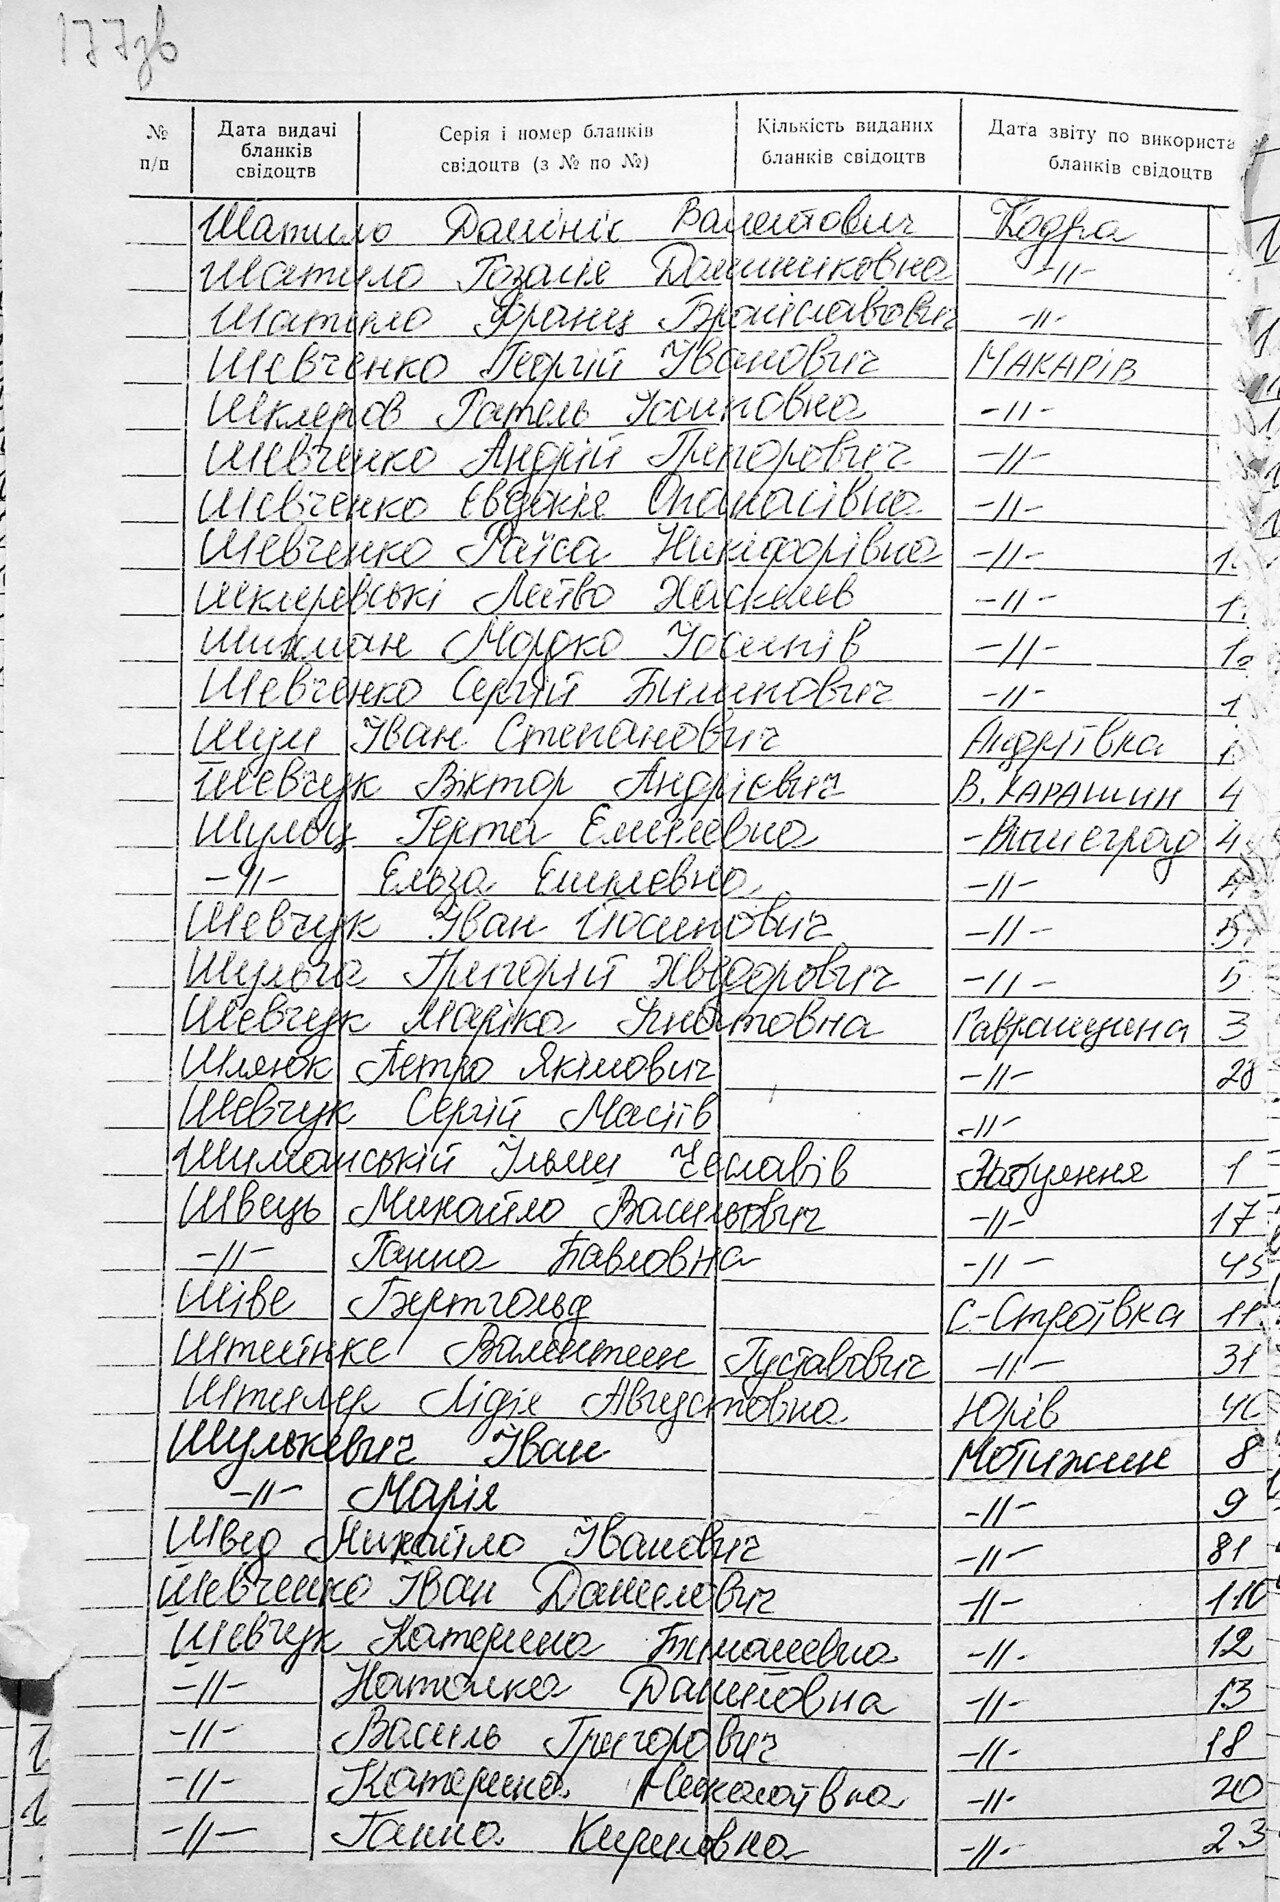 177зв
№ п/п
Дата видачі бланків свідоцтв
Серія і номер бланків свідоцтв (з № по №)
Кількість виданих бланків свідоцтв
Дата звіту по використа бланків свідоцтв
Шатило Домінік Валентович Кодра
Шатило Розалія Доминиковна -//-
Шатило Франц Броніславович -//-
Шевченко Георгій Іванович МАКАРІВ
Шкляров Рахель Йосиповна -//-
Шевченко Андрій Григорович -//-
Шевченко Євдокія Опанасівна -//-
Шевченко Раїса Никіфорівна -//- 1
Шкляревські Лейво Хаскелев -//- 1
Шихман Мордко Йосипів -//- 1
Шевченко Сергій Пилипович -//- 1
Шум Іван Степанович Андріївка 1
Шевчук Віктор Андрієвич В. КАРАШИН 4
Шульц Герта Емілевна -Вишеград 4
-//- Ельза Емілевна -//- 4
Шевчук Іван Йосипович -//- 5
Шульга Григорій Хведорович -//- 5
Шевчук Марійка Ігнатовна Гавронщина 3
Шлянюк Петро Якімович -//- 28
Шевчук Сергій -//-
Шиманській Ільми Чеславів Забуяння 1
Швець Михайло Васильович -//- 17
-//- Ганна Павловна -//- 45
Шіве Бертгольд С-Строївка 11
Штейнке Валентин Густавович -//- 31
Штилер Лідія Августовна Юрів
Шулькевич Іван Мотижин 8
-//- Марія -//- 9
Швед Михайло Іванович -//- 81
Шевченко Іван Данилович -//- 110
Шевчук Катерина Тимошевна -//- 12
-//- Наталка Даниловна -//- 13
-//- Василь Григорович -//- 18
-//- Катерина Миколаївна -//- 20
-//- Ганна Кириловна -//- 23